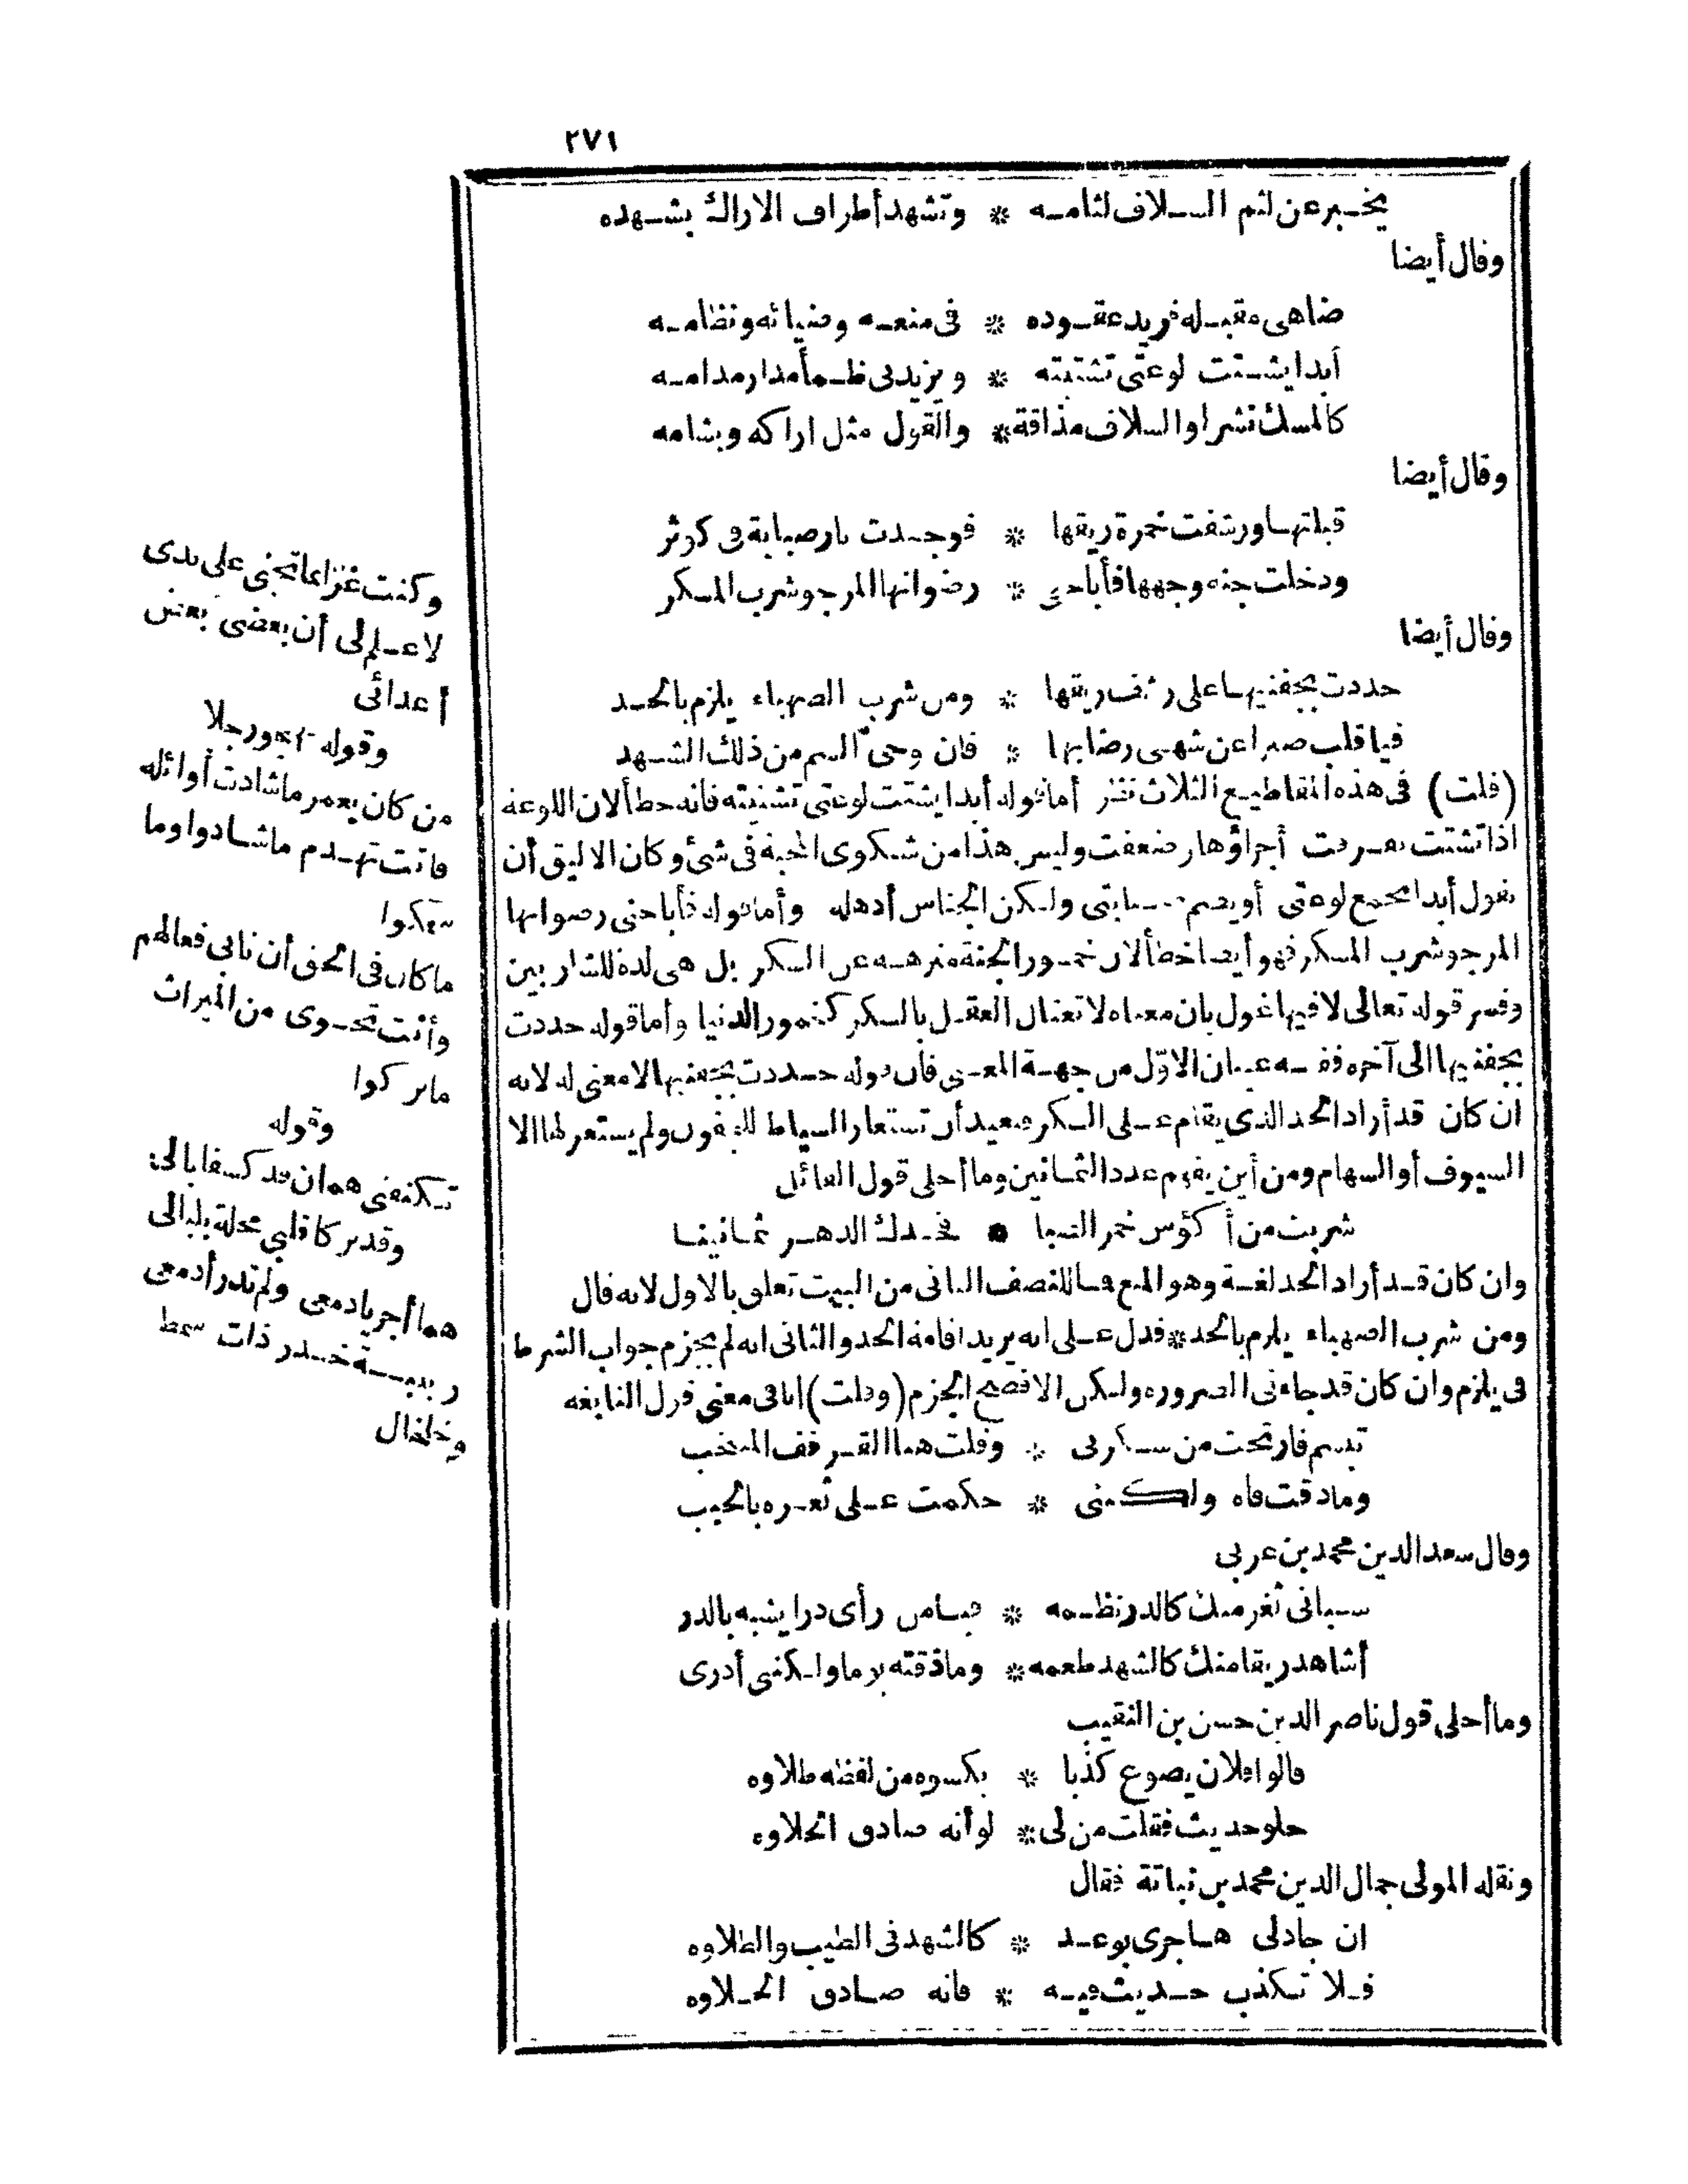 ٢٧١
يخبر عن لثم السلاف لثامه * وتشهد أطراف الاراك بشهده
وقال أيضا
ضاهى مقبله فريد عقوده * فى منعه وضيائه ونظامه
أبدا يشتت لوعتى تشتيته * ويزيدنى ظمأ مدار مدامه
كالمسك نشرا والسلاف مذاقة * والقول مثل اراكه وبشامه
وقال أيضا
قبلتها ورشفت خمرة ريقها * فوجدت نار صبابة فى كوثر
ودخلت جنه وجهها فأباحنى * رضوانها المرجو شرب المسكر
وقال أيضا
حددت بجفنيها على رشف ريقها * ومن شرب الصهباء يلزم بالحد
فيا قلب صبرا عن شهى رضابها * فان وحى السم من ذلك الشهد
(قلت) فى هذه المقاطيع الثلاث نظر أما قوله أبدا يشتت لوعتى تشتيته فانه خطأ لان اللوعة
اذا تشتت تفرقت أجزاؤها وضعفت وليس هذا من شكوى المحبة فى شئ وكان الاليق أن
يقول أبدا يجمع لوعتى أو يضم صبابتى ولكن الجناس أذهله وأما قوله فأباحنى رضوانها
المرجو شرب المسكر فهو أيضا خطأ لان خمور الجنة منزهه عن السكر بل هى لذة للشاربين
وفسر قوله تعالى لا فيها غول بان معناه لا تغتال العقل بالسكر كخمور الدنيا وأما قوله حددت
بجفنيها الى آخره ففيه عيبان الاول من جهة المعنى فان قوله حددت بجفنيها لا معنى له لانه
ان كان قد أراد الحد الذى يقام على السكر فبعيد أن تستعار السياط للجفون ولم يستعر لها الا
السيوف أو السهام ومن أين يفهم عدد الثمانين وما أحلى قول القائل
شربت من أكؤس خمر الصبا * فحدك الدهر ثمانينا
وان كان قد أراد الحد لغة وهو المنع فما للنصف الثانى من البيت تعلق بالاول لانه قال
ومن شرب الصهباء يلزم بالحد * فدل على انه يريد اقامة الحد والثانى انه لم يجزم جواب الشرط
فى يلزم وان كان قد جاء فى الضرورة ولكن الافصح الجزم (وقلت) انا فى معنى قول النابغه
تبسم فارتحت من سكرتى * وقلت هنا القرقف المنتخب
وما ذقت فاه ولكننى * حكمت على ثغره بالحبب
وقال سعد الدين محمد بن عربى
سبانى ثغر منك كالدر نظمه * فيا من رأى درا يشبه بالدر
أشاهد ريقا منك كالشهد طعمه * وما ذقته يوما ولكننى أدرى
وما أحلى قول ناصر الدين حسن بن النقيب
قالوا فلان يصوغ كذبا * يكسوه من لفظه طلاوه
حلو حديث فقلت من لى * لو أنه صادق الحلاوه
ونقله المولى جمال الدين محمد بن نباتة فقال
ان جادلى هاجرى بوعد * كالشهد فى الطيب والطلاوه
فلا تكذب حديث فيه * فانه صادق الحلاوه
وكنت غرا بما تجنى على يدى
لا علم لى أن بعضى بعض
أعدائى
وقوله يهجو رجلا
من كان يعمر ما شادت أوائله
فانت تهدم ما شادوا وما
سمكوا
ما كان فى الحق أن تأبى فعالهم
وأنت تحوى من الميراث
ما تركوا
وقوله
تكنفنى همان قد كسفا بالى
وقد تركا قلبى محلة بلبالى
هما أجريا دمعى ولم تدر أدمعى
ربيبة خدر ذات سمط
وخلخال